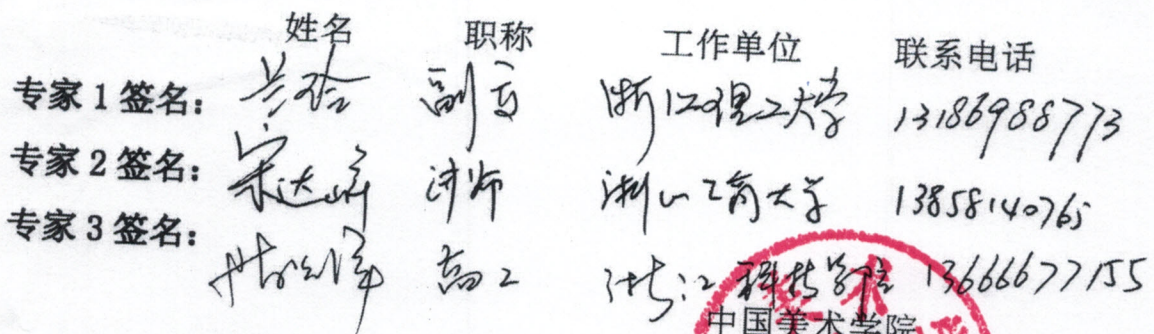 姓名 职称 工作单位 联系电话
专家1签名： 副高 浙江理工大学 13186988773
专家2签名：宋达峰 讲师 浙江工商大学 13858140765
专家3签名： 高工 浙江科技学院 13666677155
美术
中国美术学院